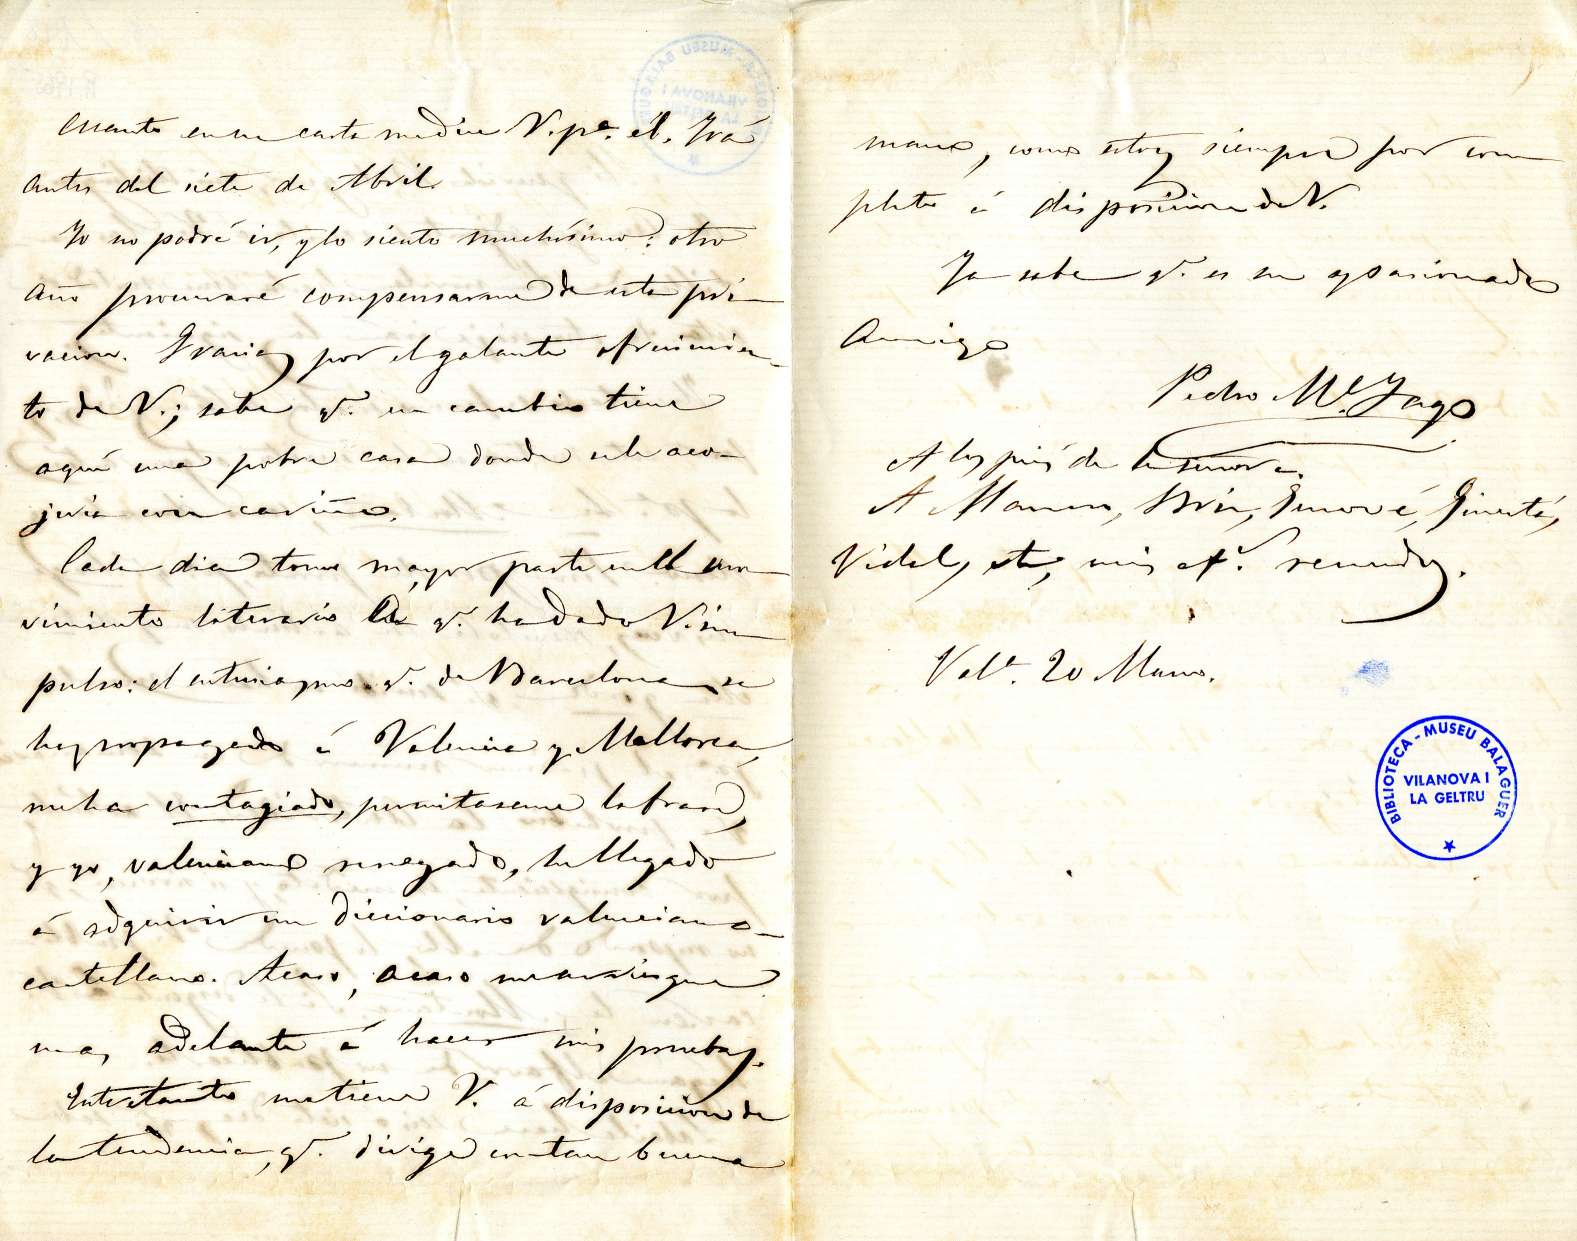 Cuanto en su carta me dice V. pª. él. Irá
antes del siete de Abril.
Yo no podré ir, y lo siento muchísimo: otro
año procuraré compensarme de esta pri-
vacion. Gracias por el galante ofrecimien-
to de V.; sabe q.e en cambio tiene
aquí una pobre casa donde se le aco-
jeria con cariño.
Cada dia tomo mayor parte en el mo-
vimiento literario á q.e ha dado V. im-
pulso: el entusiasmo q.e de Barcelona se
ha propagado á Valencia y Mallorca,
me ha contagiado, permitaseme la frase,
y yo, valenciano renegado, he llegado
á adquirir un diccionario valenciano-
castellano. Acaso, acaso me arriesgue
mas adelante á hacer mis pruebas.
Entretanto me tiene V. á disposicion de
la tendencia, q.e dirige con tan buena
mano, como estoy siempre por com-
pleto á disposicion de V.
Ya sabe q.e es su apasionado
Amigo
Pedro Mª. Yago
A los piés de su señora.
A Manuer, Briz, Genové, Ginestá,
Vidal, etc, mis af.s recuerdos.
Valª. 20 Marzo.
BIBLIOTECA - MUSEU BALAGUER
VILANOVA I
LA GELTRU